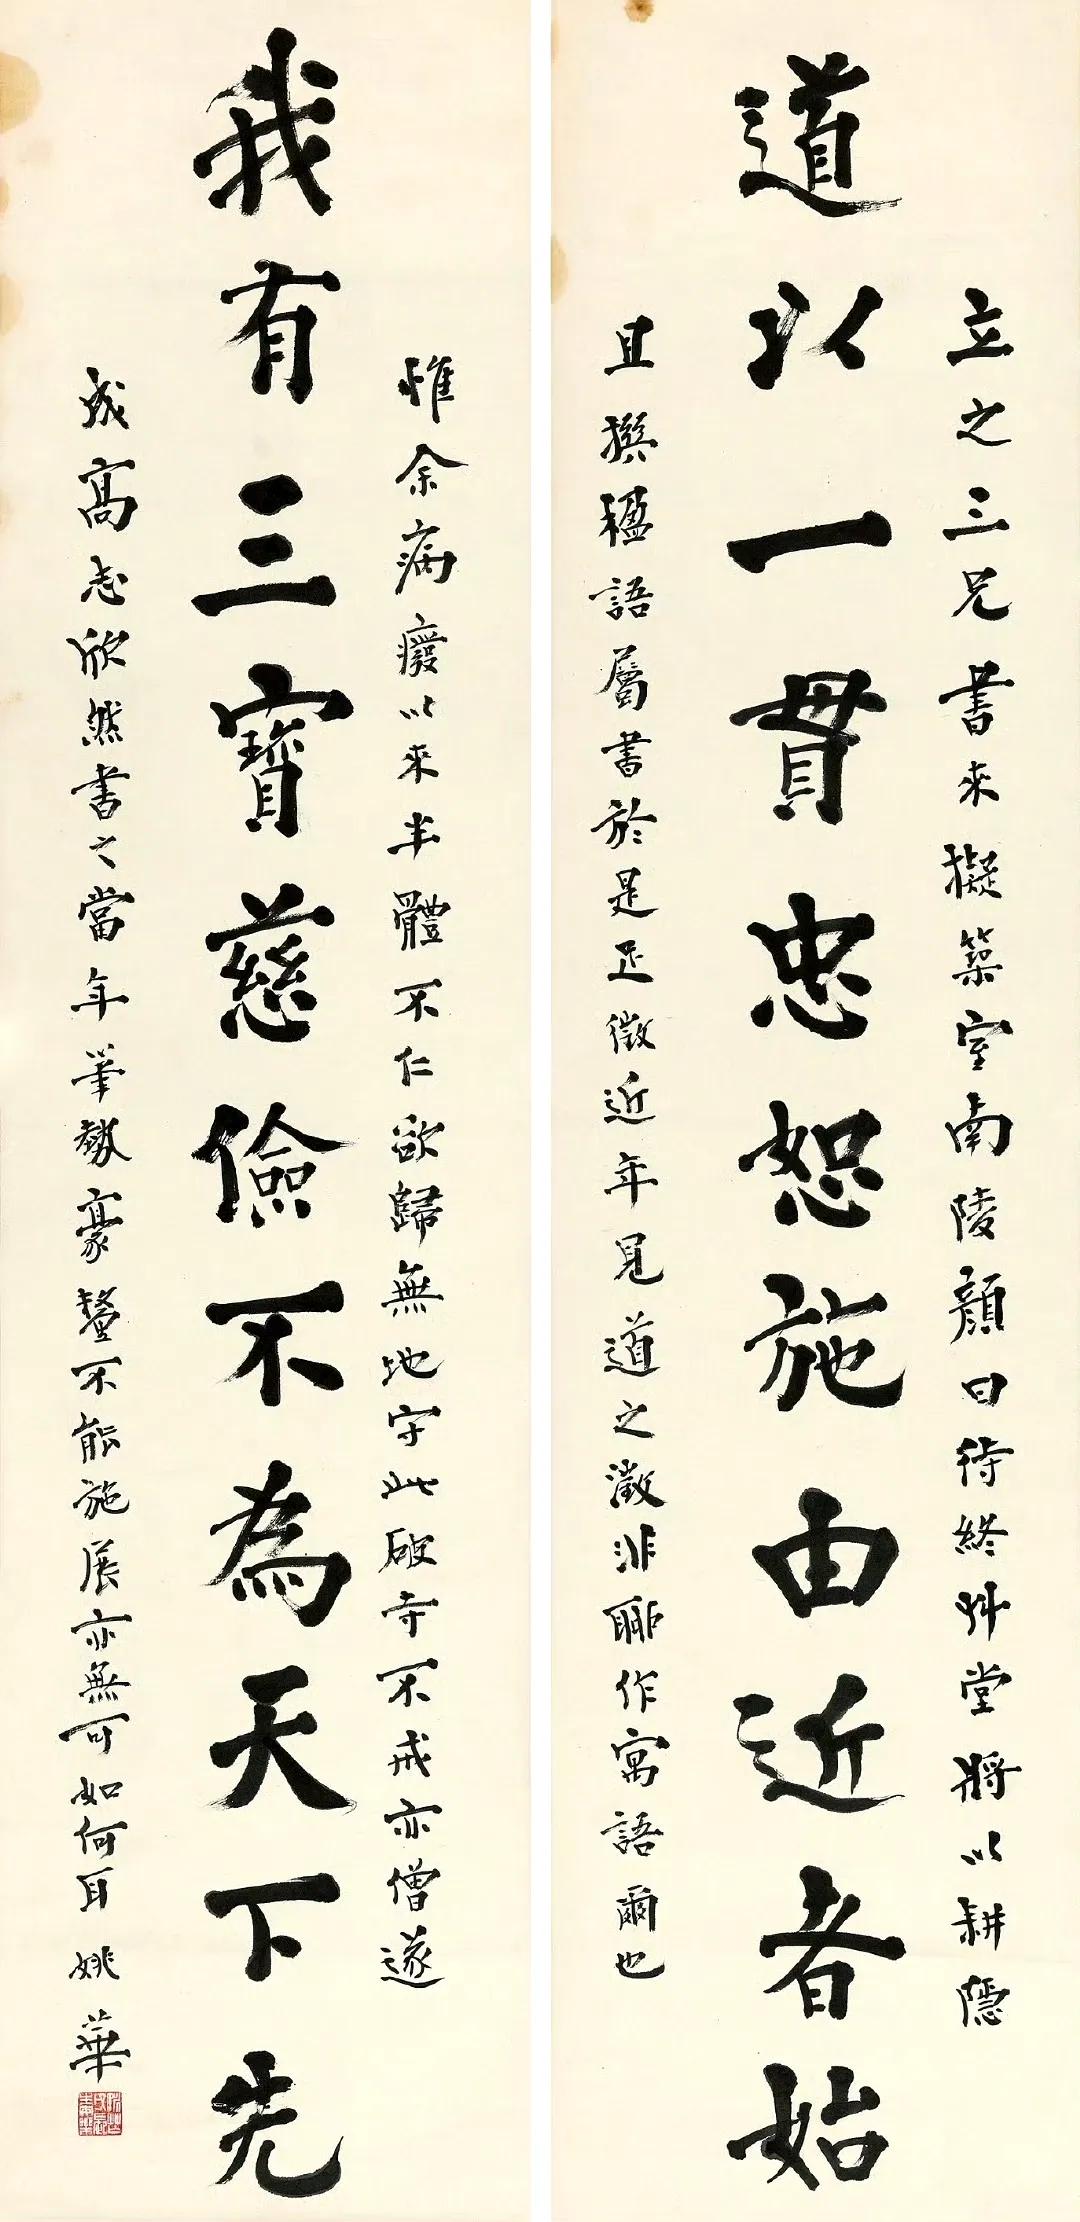 道以一貫忠恕施由近者始
立之三兄書來擬築室南陵顏曰待終艸堂將以耕隱
且撰楹語屬書於是足徵近年見道之澂非聊作寓語爾也
我有三寶慈儉不為天下先
惟余病癈以來半體不仁欲歸無地守此破寺不戒亦僧遂
成高志欣然書之當年筆勢豪釐不能施展亦無可如何耳 姚華